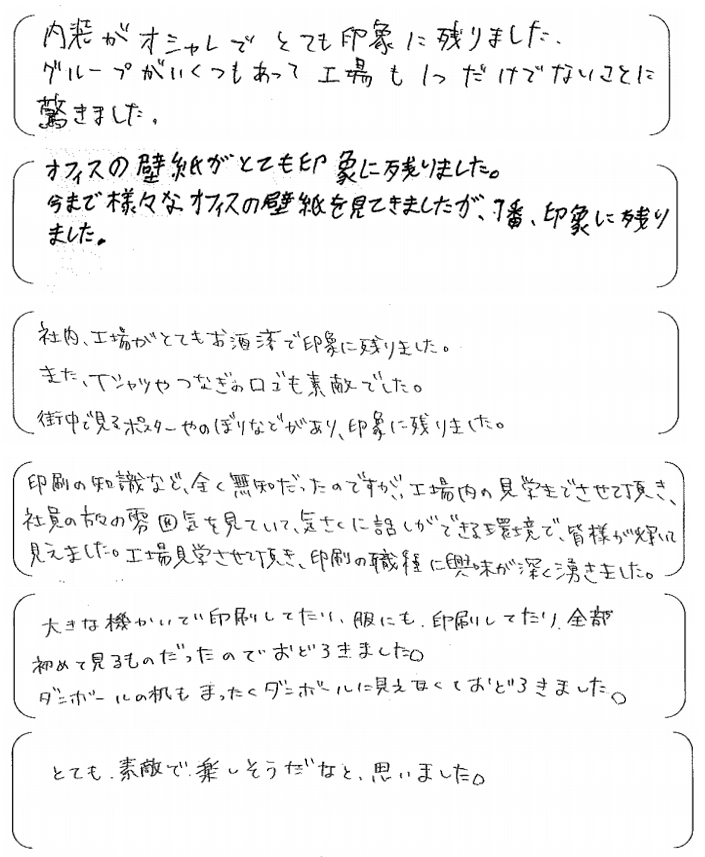 内装がオシャレでとても印象に残りました。
グループがいくつもあって工場も1つだけでないことに
驚きました。
オフィスの壁紙がとても印象に残りました。
今まで様々なオフィスの壁紙を見てきましたが、1番、印象に残り
ました。
社内、工場がとてもお洒落で印象に残りました。
また、Tシャツやつなぎのロゴも素敵でした。
街中で見るポスターやのぼりなどがあり、印象に残りました。
印刷の知識など、全く無知だったのですが、工場内の見学までさせて頂き、
社員の方々の雰囲気を見ていて、気さくに話しができる環境で、皆様が輝いて
見えました。工場見学させて頂き、印刷の職種に興味が深く湧きました。
大きな機かいで印刷してたり、服にも印刷してたり、全部
初めて見るものだったのでおどろきました。
ダンボールの机もまったくダンボールに見えなくておどろきました。
とても素敵で楽しそうだなと、思いました。